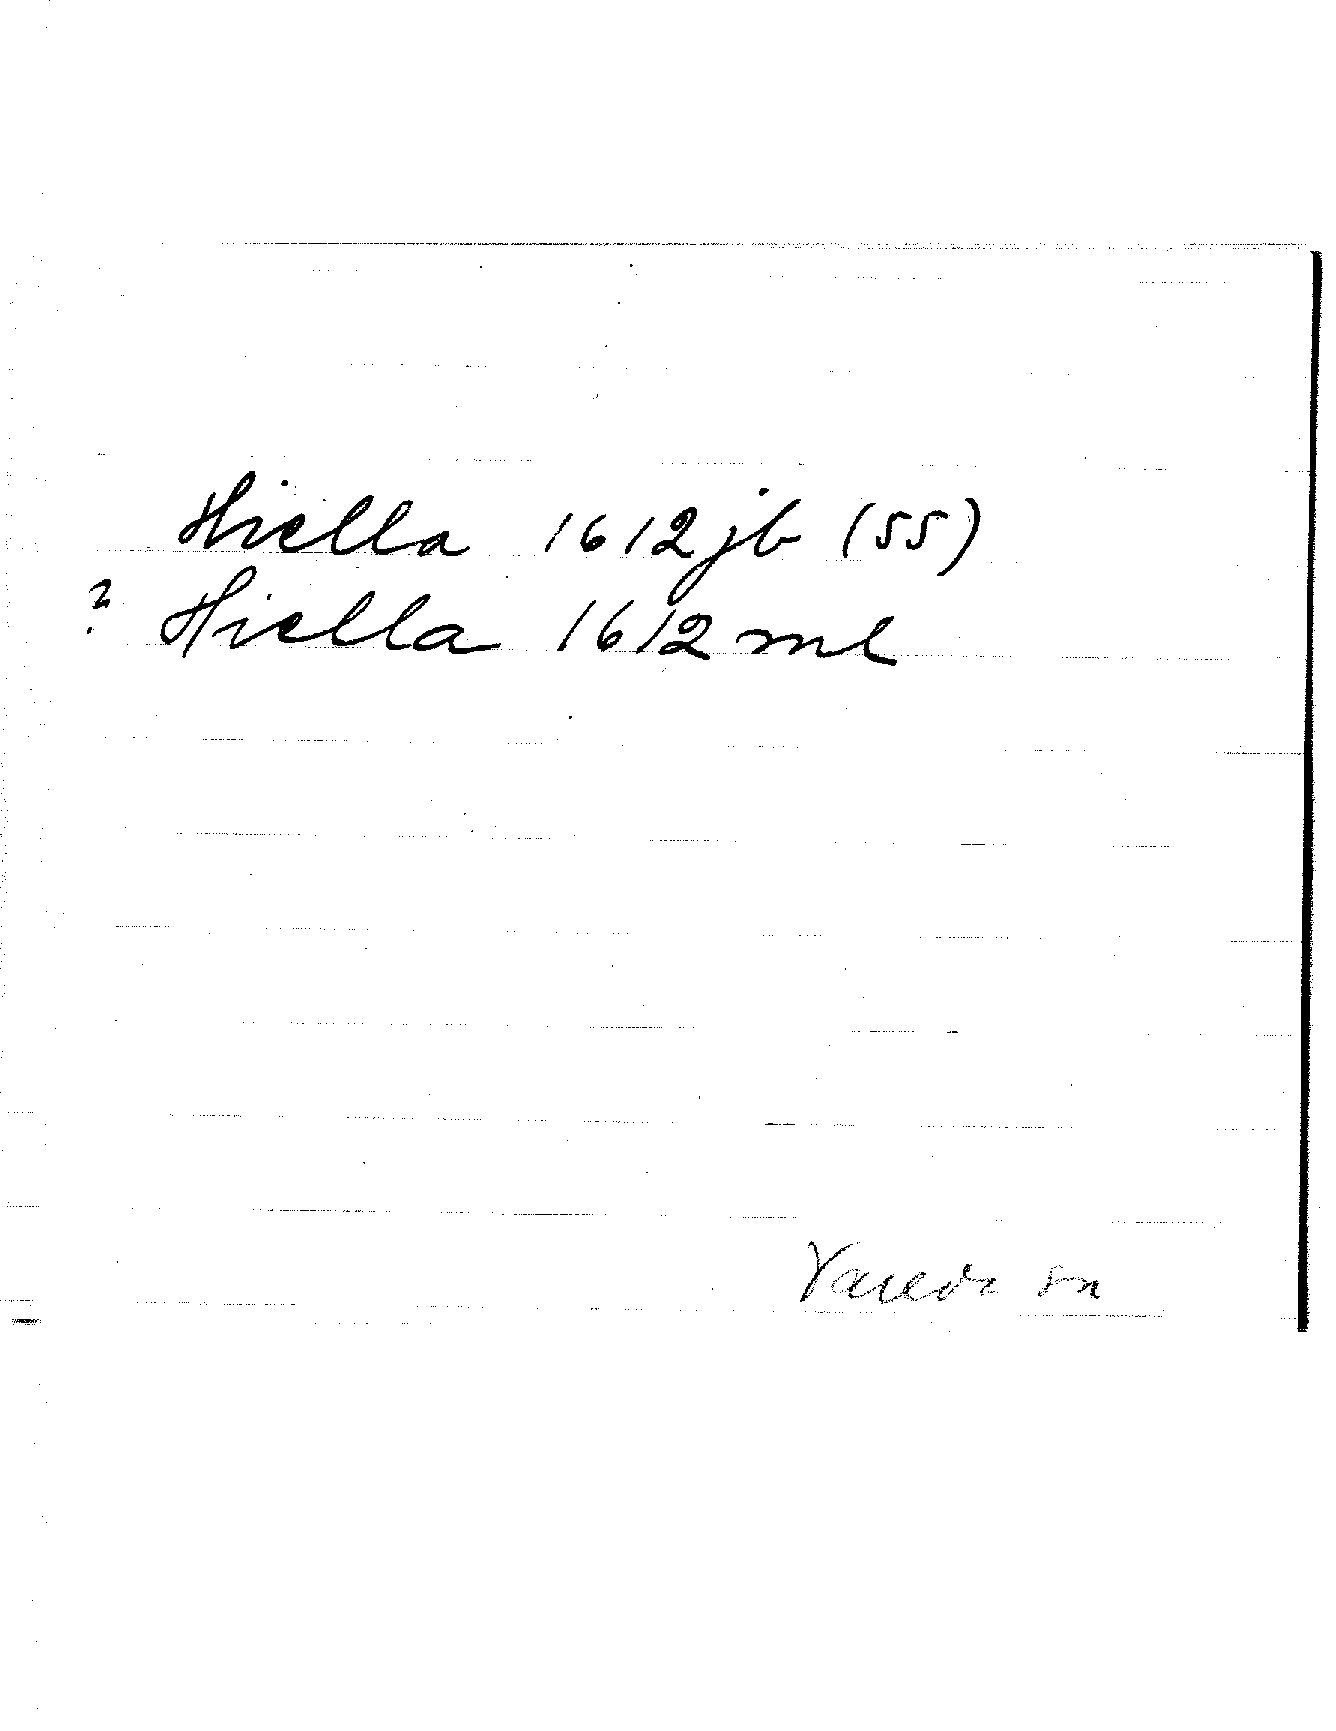 Hiella 1612 jb (55)
? Hiella 1612 ml
Vareda sn